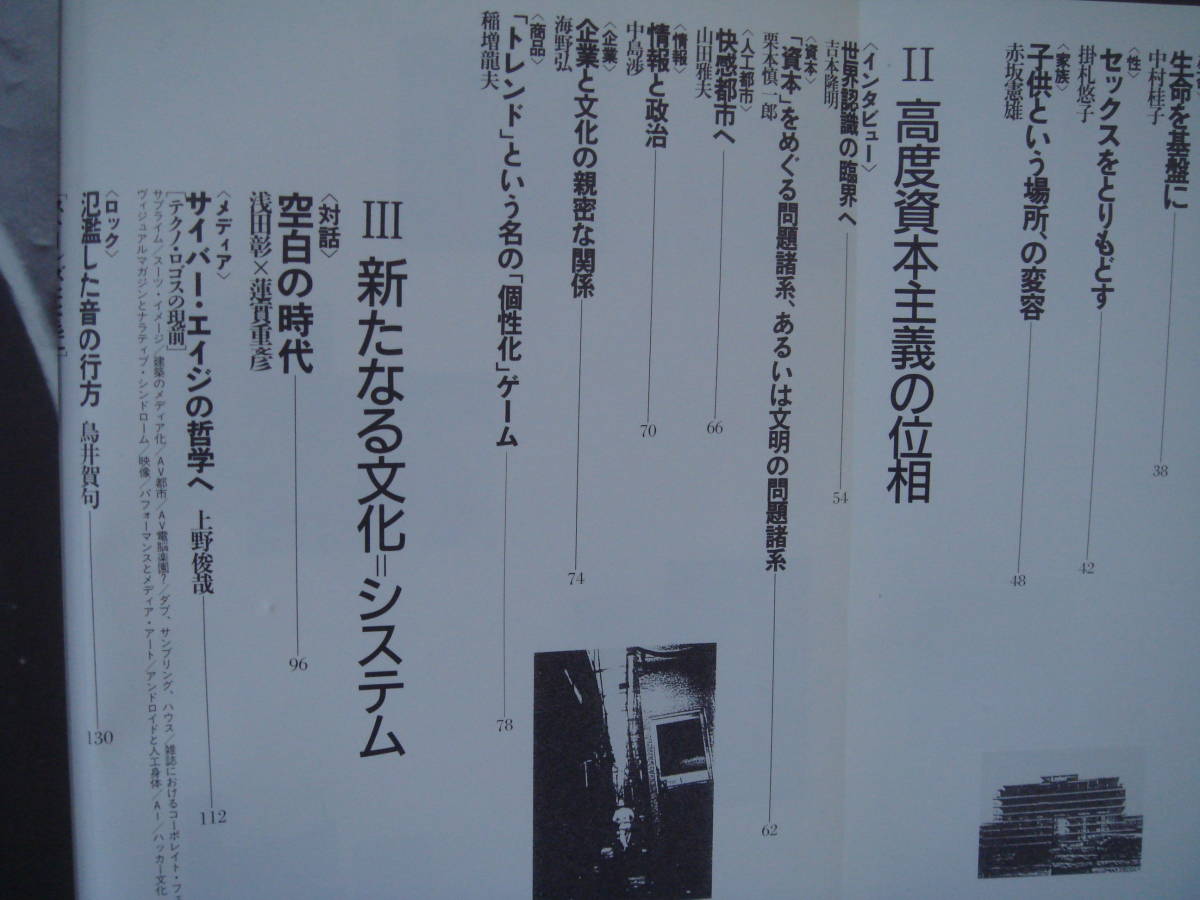 生命を基盤に
中村桂子
38
〈性〉
セックスをとりもどす
掛札悠子
42
〈家族〉
子供という場所、の変容
赤坂憲雄
48
II 高度資本主義の位相
〈インタビュー〉
世界認識の臨界へ
吉本隆明
54
〈資本〉
「資本」をめぐる問題諸系、あるいは文明の問題諸系
栗本慎一郎
62
〈人工都市〉
快感都市へ
山田雅夫
66
〈情報〉
情報と政治
中島渉
70
〈企業〉
企業と文化の親密な関係
海野弘
74
〈商品〉
「トレンド」という名の「個性化」ゲーム
稲増龍夫
78
III 新たなる文化=システム
〈対話〉
空白の時代
浅田彰×蓮實重彦
96
〈メディア〉
サイバー・エイジの哲学へ 上野俊哉
112
[テクノ・ロゴスの現前]
サブライム/スーツ・イメージ/建築のメディア化/AV都市/AV電脳楽園?/ダブ、サンプリング、ハウス/雑誌におけるコーポレイト・フ
ヴィジュアルマガジンとナラティブ・シンドローム/映像/パフォーマンスとメディア・アート/アンドロイドと人工身体/AI/ハッカー文化
〈ロック〉
氾濫した音の行方 鳥井賀句
130